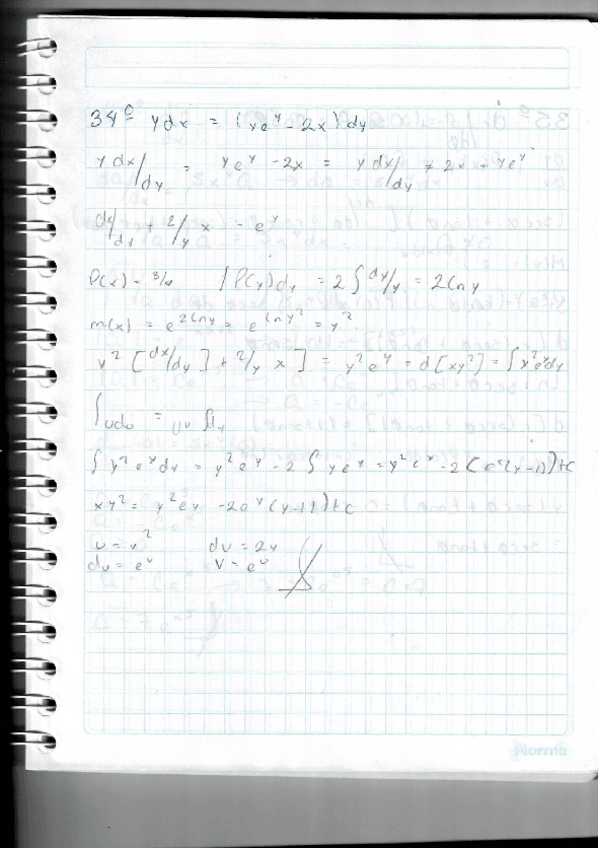 34º y dx = (ye^y - 2x) dy
y dx/dy = ye^y - 2x = y dx/dy + 2x = ye^y
dx/dy + 2/y x = e^y
P(x) = ∫P(y)dy = 2∫dy/y = 2lny
m(x) = e^2lny = e^lny² = y²
y² [dx/dy] + 2/y x ] = y²e^y = d[xy²] = ∫y²e^y dy
∫udv = uv
∫y²e^y dy = y²e^y - 2∫ye^y = y²e^y - 2(e^y(y-1))+c
xy² = y²e^y - 2e^y(y-1)+c
u = y² du = 2y
dv = e^y v = e^y
Norma